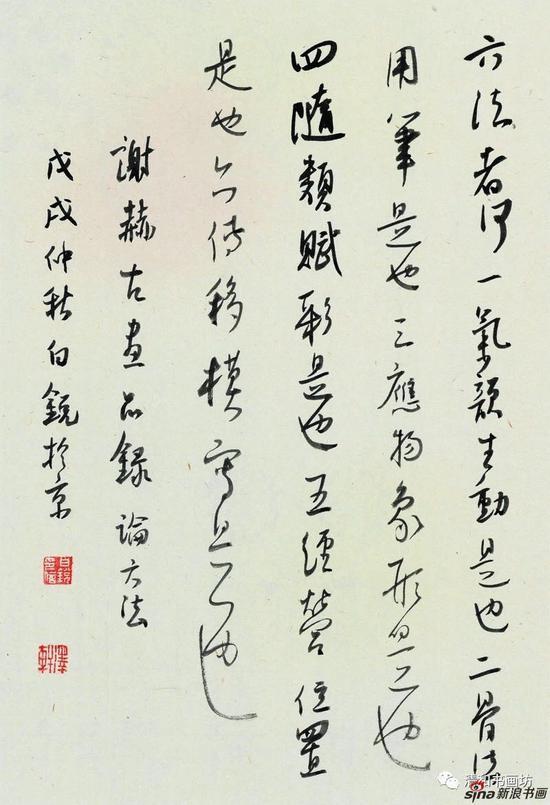 六法者何一氣韻生動是也二骨法
用筆是也三應物象形是也
四隨類賦彩是也五經營位置
是也六傳移模寫是也
謝赫古畫品錄論六法
戊戌仲秋白銳於京
清和书画坊
sina新浪书画